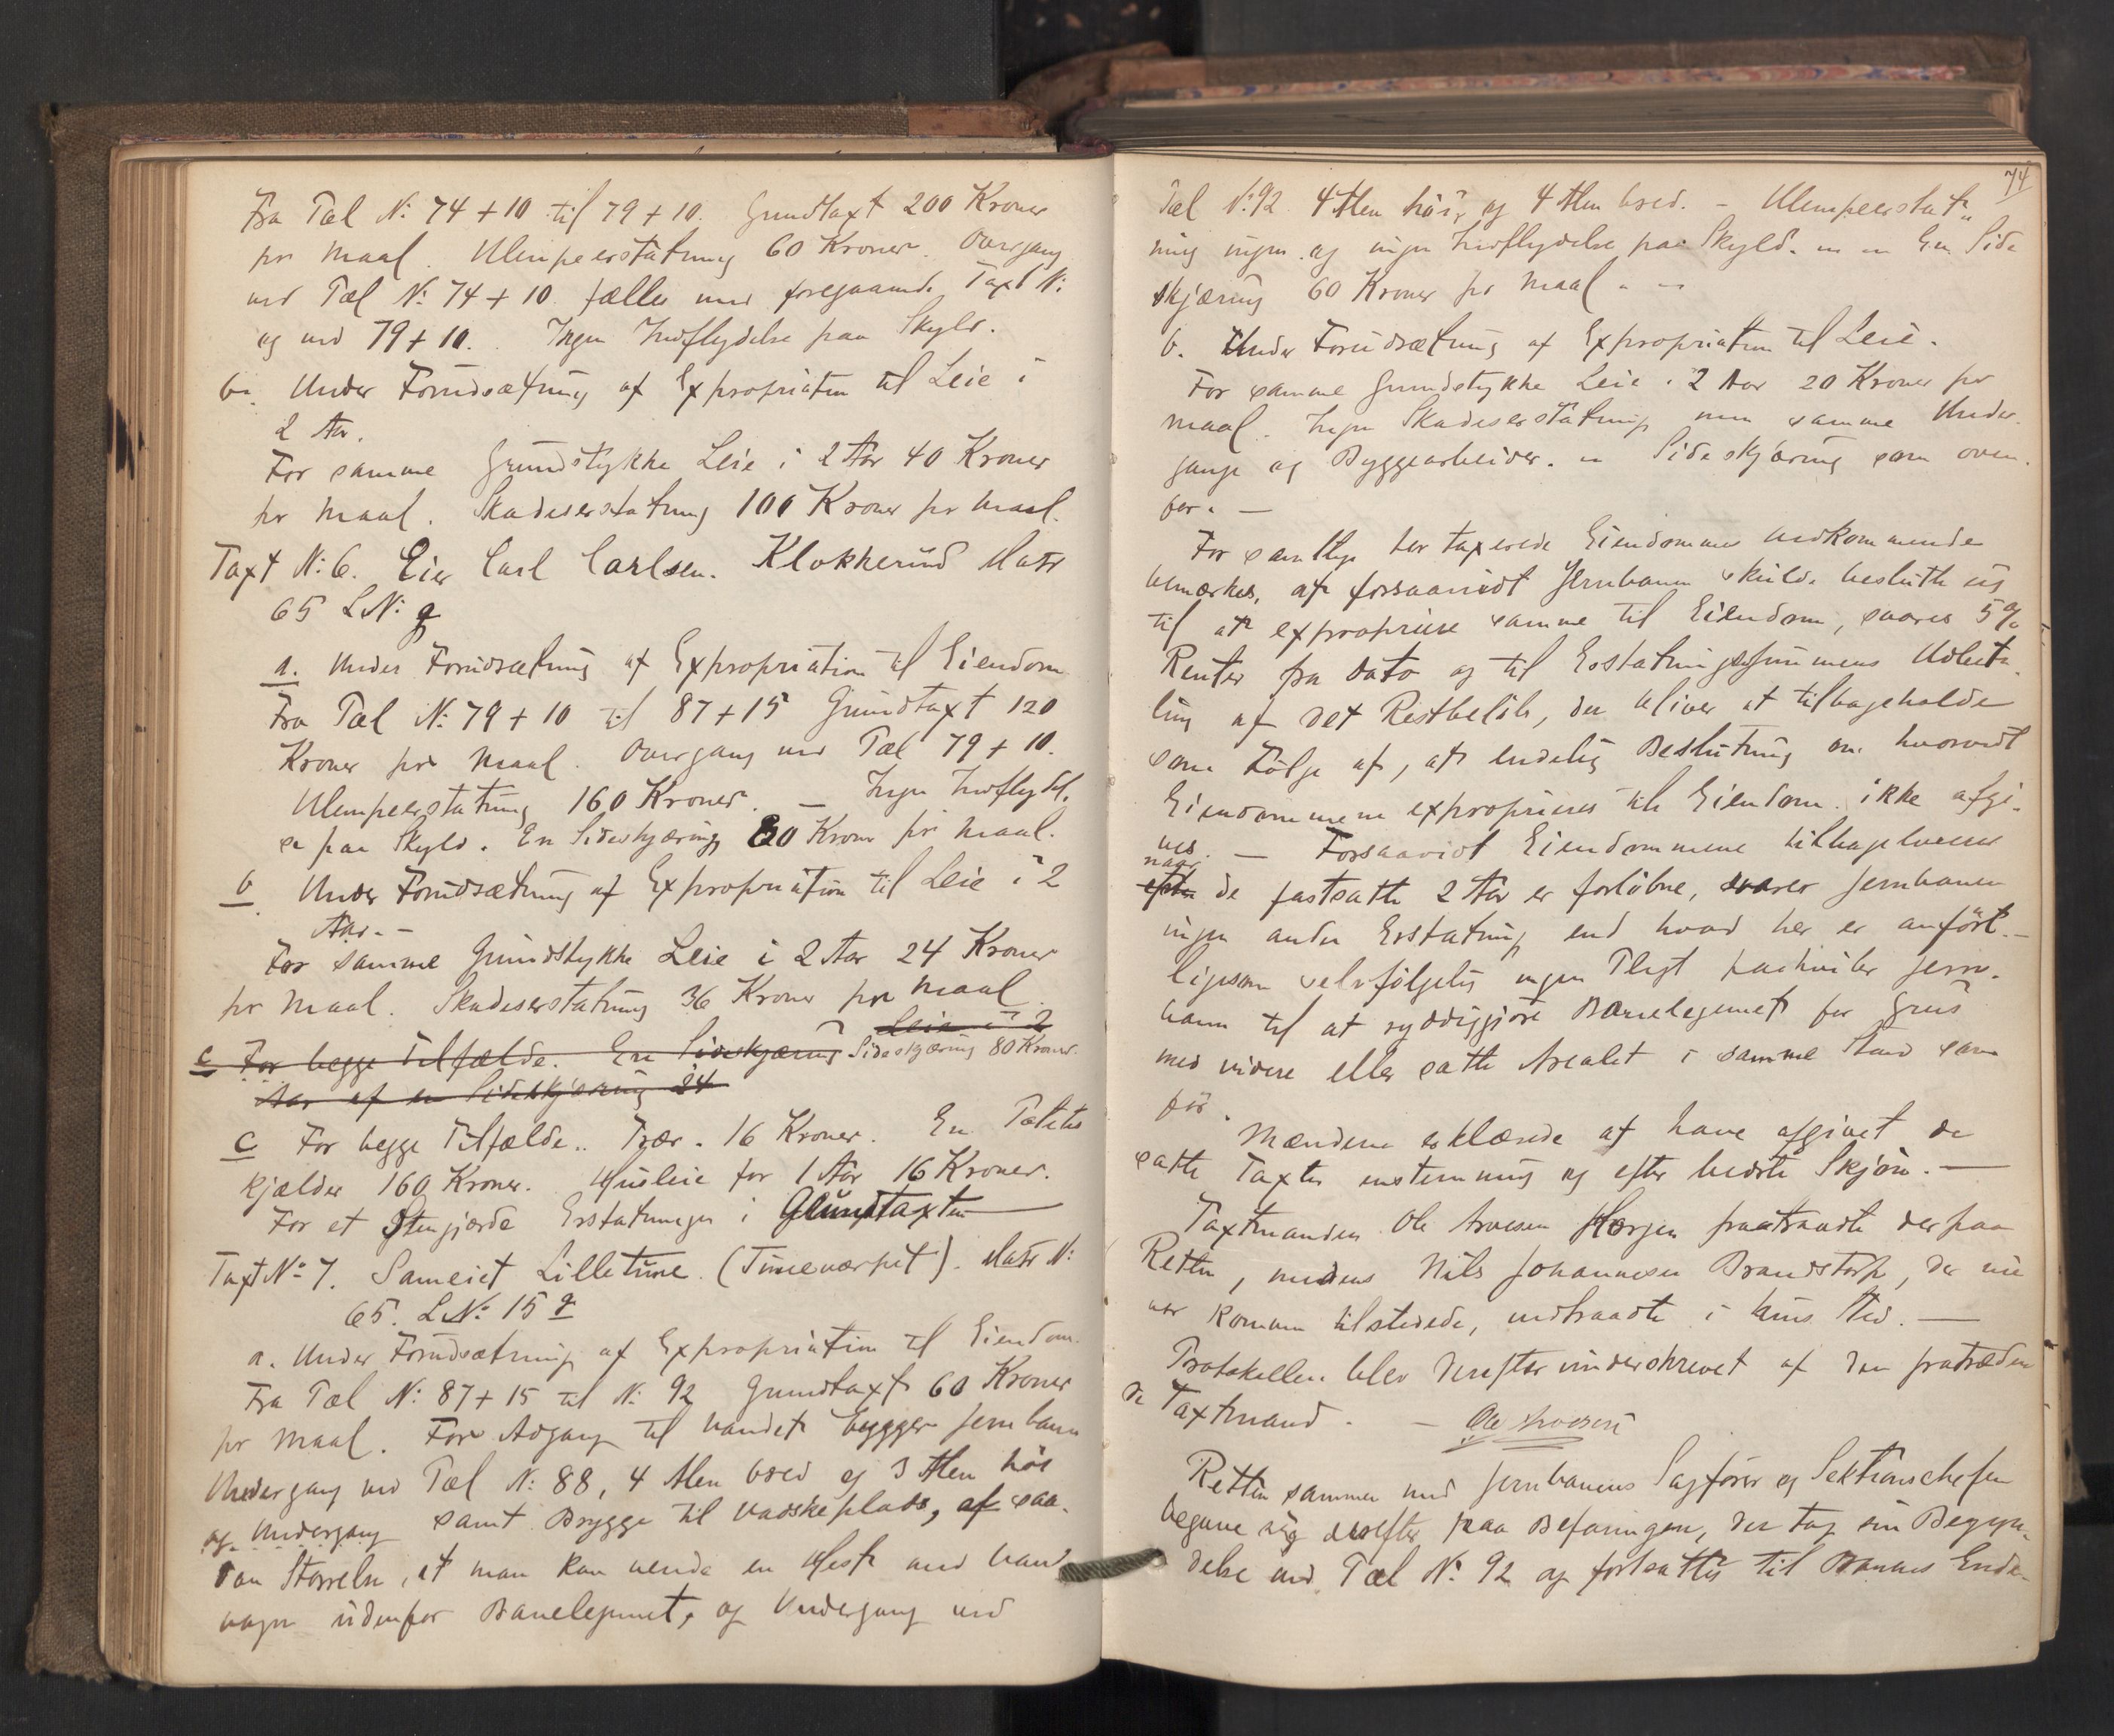 Fra Pæl N: 74 + 10 til 79 + 10. Grundtaxt 200 Kroner
pr Maal. Ulempeerstatning 60 Kroner. Overgang
ved Pæl N: 74 + 10 fælles med foregaaende Taxt N:
og ved 79 + 10. Ingen Indflydelse paa Skyld.
b. Under Forudsætning af Expropriation til Leie i
2 Aar.
For samme Grundstykke Leie i 2 Aar 40 Kroner
pr Maal. Skadeserstatning 100 Kroner pr Maal.
Taxt N: 6. Eier Carl Carlsen. Klokkerud Matr
65 LN: g
a. Under Forudsætning af Expropriation til Eiendom
Fra Pæl N: 79 + 10 til 87 + 15 Grundtaxt 120
Kroner pr Maal. Overgang ved Pæl 79 + 10.
Ulempeerstatning 160 Kroner. — Ingen Indflydel-
se paa Skyld. En Sideskjæring 80 Kroner pr Maal.
b Under Forudsætning af Expropriation til Leie i 2
Aar. -
For samme Grundstykke Leie i 2 Aar 24 Kroner
pr Maal. Skadeserstatning 36 Kroner pr Maal.
Leie i 2
c For begge Tilfælde. En Sideskjæring Sideskjæring 80 Kroner.
Aar af en Sideskjæring 24
c For begge Tilfælde.. Trær. 16 Kroner. En Potetes
kjælder 160 Kroner. Husleie for 1 Aar 16 Kroner.
For et Stengjærde Erstatningen i Grundtaxten —
Taxt N: 7. Sameiet Lilletune. (Tuneværpet). Matr N:
65. LN: 15 g
a. Under Forudsætning af Expropriation til Eiendom.
Fra Pæl N: 87 + 15 til N: 92 Grundtaxt 60 Kroner
pr Maal. For Adgang til Vandet bygger Jernbanen
Undergang ved Pæl N: 88, 4 Alen bred og 3 Alen höi
og Undergang samt Brygge til Vadskeplads, af saa-
dan Størrelse, at man kan vende en Hest med Vand
vogn udenfor Banelegemet, og Undergang ved
74
Pæl N: 92 4 Alen höi, og 4 Alen bred. - Ulempeerstat-
ning ingen og ingen Indflydelse paa Skyld. En Side
skjæring 60 Kroner pr Maal.
b. Under Forudsætning af Expropriation til Leie.
For samme Grundstykke Leie i 2 Aar 20 Kroner pr
Maal. Ingen Skadeserstatning men samme Under-
gange og Byggearbeider. Sideskjæring som oven-
for. —
For samtlige her taxerede Eiendomme vedkommende
bemærkes, at forsaavidt Jernbanen skulde beslutte sig
til at expropriere samme til Eiendom, svares 5 %
Renter fra dato og til Erstatningssummens Udbeta-
ling af det Restbeløb, der bliver at tilbageholde
som Fölge af, at endelig Beslutning om hvorvidt
Eiendommene exproprieres til Eiendom ikke afgi-
ves. — Forsaavidt Eiendommene tilbageleveres
naar
efter de fastsatte 2 Aar er forløbne, svarer Jernbanen
ingen anden Erstatning end hvad her er anført. -
ligesom selvfølgelig ingen Pligt paahviler Jern-
banen til at ryddiggjøre Banelegemet for Grus
med videre eller sætte Arealet i samme Stand som
för.
Mændene erklærede at have afgivet de
satte Taxter enstemmig og efter bedste Skjøn. —
Taxtmanden Ole Arvesen Horgen fratraadte derpaa
Retten, medens Nils Johannesen Brandstorp, der nu
var kommen tilstede, indtraadte i hans Sted. —
Protokollen blev derefter underskrevet af den fratræden
de Taxtmand. — Ole Arvesen
Retten sammen med Jernbanens Sagfører og Sektionschefen
begave sig derefter paa Befaringen, der tog sin Begyn-
delse ved Pæl N: 92 og fortsattes til Banens Ende-